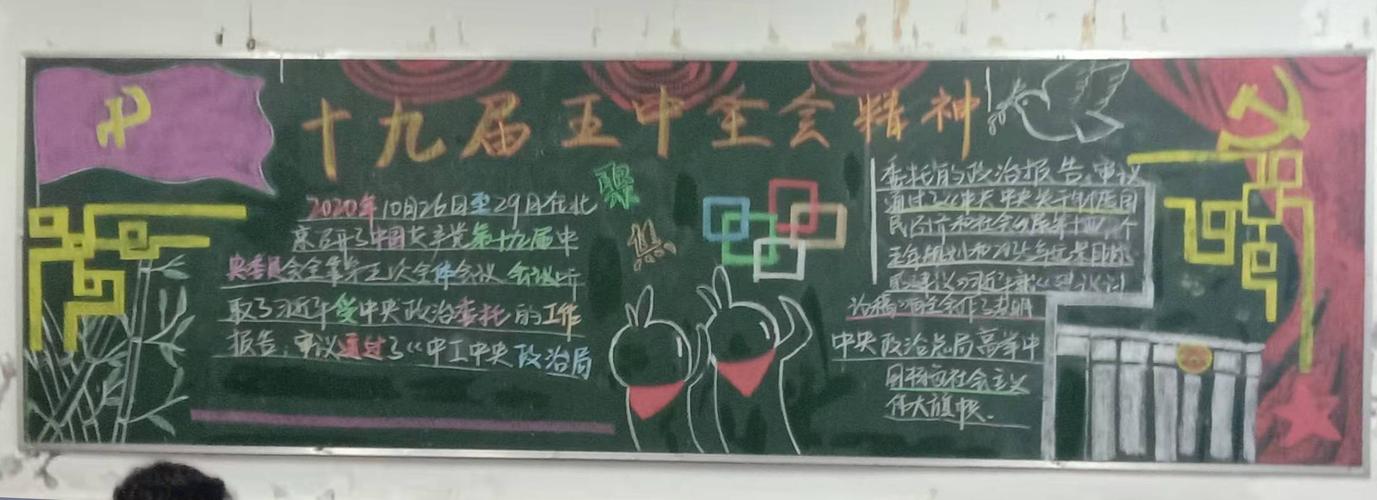 十九届五中全会精神
2020年10月26日至29日在北
京召开了中国共产党第十九届中
央委员会全体第五次全体会议 会议听
取了习近平受中央政治委托的工作
报告,审议通过了《中工中央政治局
委托的政治报告、审议
通过了《中共中央关于制定国
民经济和社会发展第十四个
五年规划和2035年远景目标
的建议》习近平就《建议讨
论稿》向全会作了说明
中央政治总局高举中
国特色社会主义
伟大旗帜.